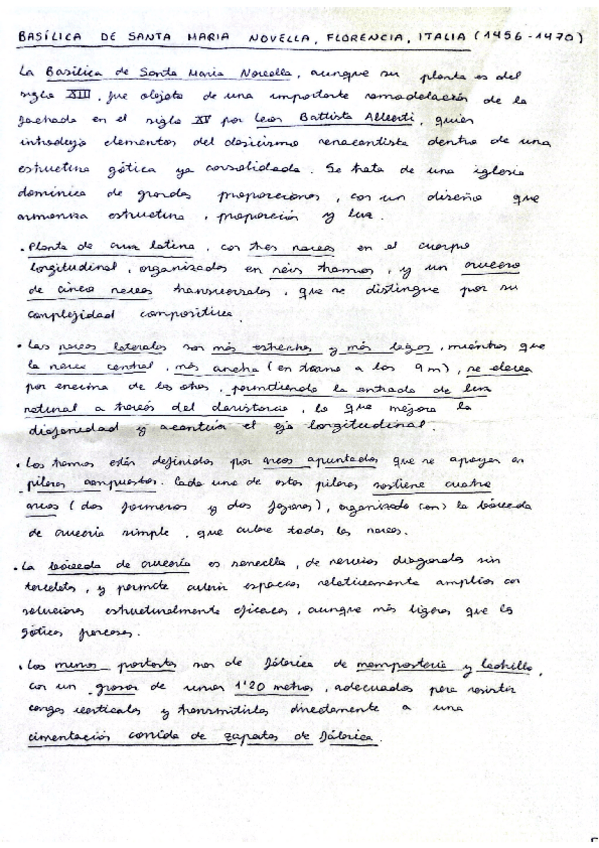 BASÍLICA DE SANTA MARIA NOVELLA, FLORENCIA, ITALIA (1456-1470)
La Basílica de Santa Maria Novella, aunque su planta es del
siglo XIII, fue objeto de una importante remodelación de la
fachada en el siglo XV por Leon Battista Alberti, quien
introdujo elementos del clasicismo renacentista dentro de una
estructura gótica ya consolidada. Se trata de una iglesia
dominica de grandes proporciones, con un diseño que
armoniza estructura, proporción y luz.
• Planta de cruz latina, con tres naves en el cuerpo
longitudinal, organizadas en seis tramos, y un crucero
de cinco naves transversales, que se distingue por su
complejidad compositiva.
• Las naves laterales son más estrechas y más bajas, mientras que
la nave central, más ancha (en torno a los 9 m), se eleva
por encima de las otras, permitiendo la entrada de luz
natural a través del claristorio, lo que mejora la
diafanidad y acentúa el eje longitudinal.
• Los tramos están definidos por arcos apuntados que se apoyan en
pilares compuestos. Cada uno de estos pilares sostiene cuatro
arcos (dos formeros y dos fajones), organizado con la bóveda
de crucería simple, que cubre todas las naves.
• La bóveda de crucería es sencilla, de nervios diagonales sin
terceletes, y permite cubrir espacios relativamente amplios con
soluciones estructuralmente eficaces, aunque más ligeras que las
góticas francesas.
• Los muros portantes son de fábrica de mampostería y ladrillo,
con un grosor de unos 1'20 metros, adecuados para resistir
cargas verticales y transmitirlas directamente a una
cimentación corrida de zapatas de fábrica.